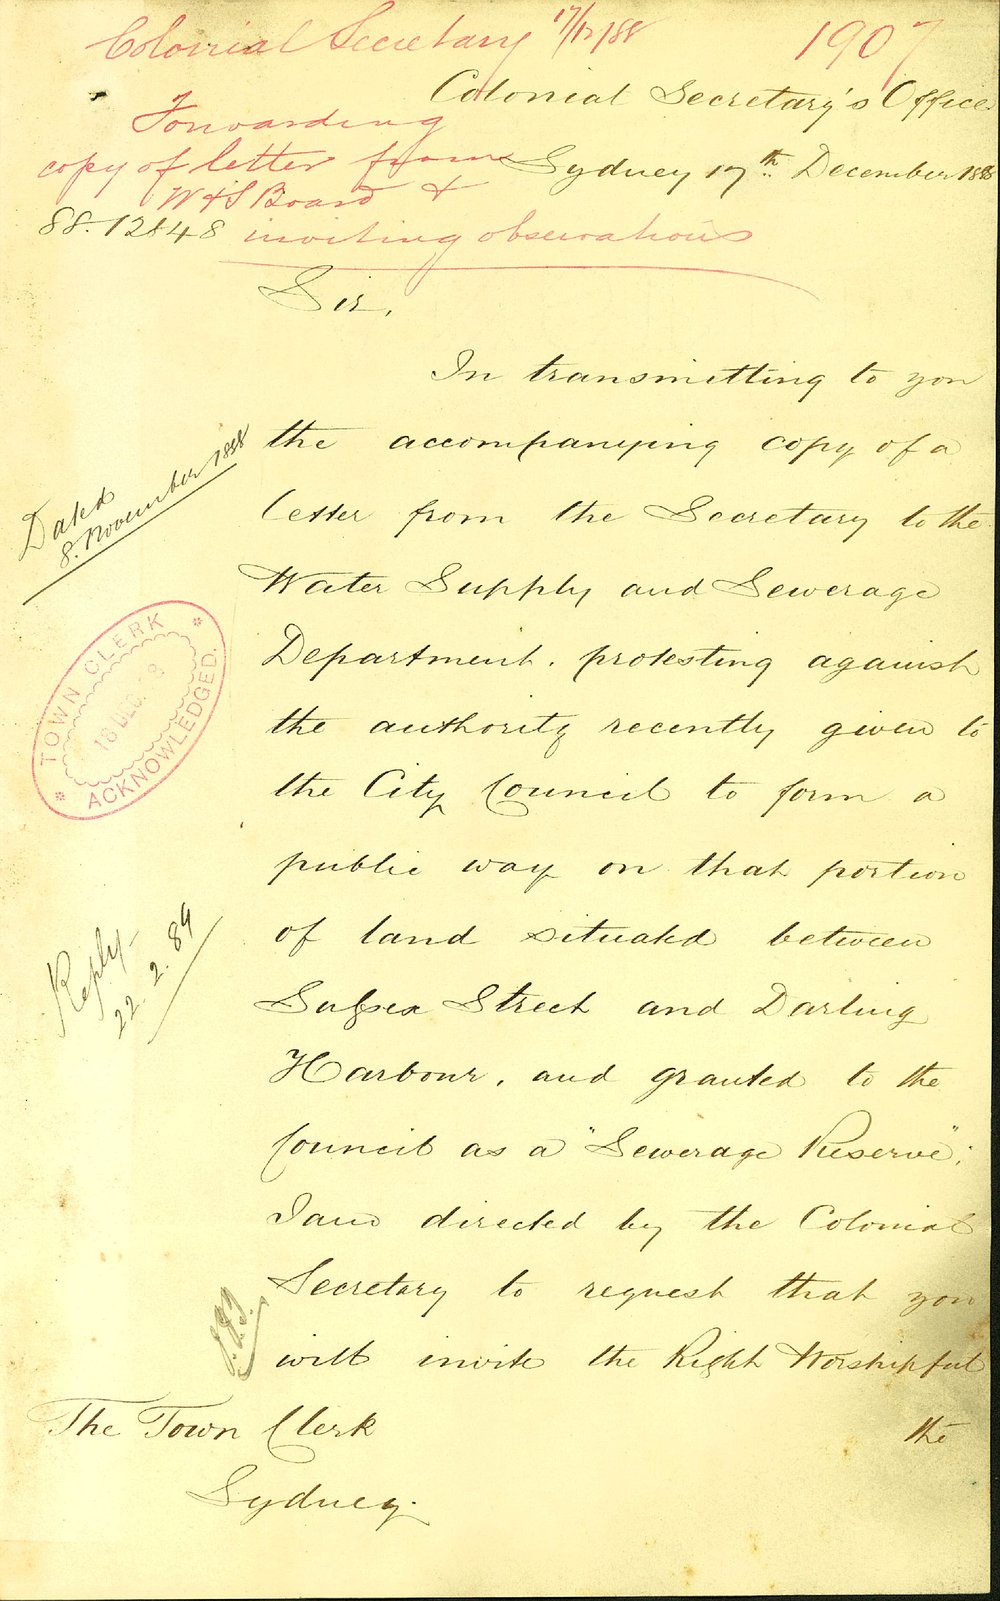 Colonial Secretary 17/12/88
1907
Colonial Secretary's Office
Forwarding
copy of letter from
Sydney 17th December 1888
W & S Board &
88.12848 inviting observations
Sir,
In transmitting to you
the accompanying copy of a
Dated
8. November 1888
letter from the Secretary to the
Water Supply and Sewerage
Department. protesting against
the authority recently given to
the City Council to form a
TOWN CLERK
18 DEC.
ACKNOWLEDGED.
public way on that portion
of land situated between
Reply
22.2.89
Sussex Street and Darling
Harbour, and granted to the
Council as a "Sewerage Reserve";
I am directed by the Colonial
Secretary to request that you
will invite the Right Worshipful
the
The Town Clerk
Sydney.